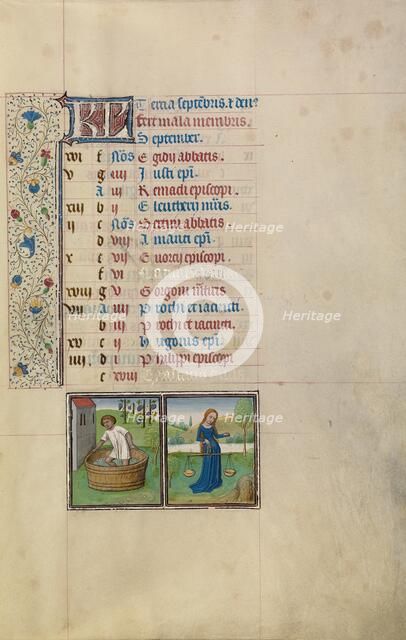 KL Tercia septẽbris ⁊ den9
fert mala membris.
September.
xvi f Noñ Egidij abbatis.
v g iiij Justi ep̃i.
A iij Remacli episcopi.
xiij b ij Eleutherij m̃ris.
ij c Noñ Bertini abbatis.
d viij Amanti ep̃i.
x e vij Evorcij episcopi.
f vi
xviij g v Gorgonij m̃ris
vij A iiij Prothi et iacincti.
b iij Prothi et iacincti.
xv c ij
iiij d Philippi episcopi
e xviij
Heritage
Heritage
Heritage
Heritage
Heritage